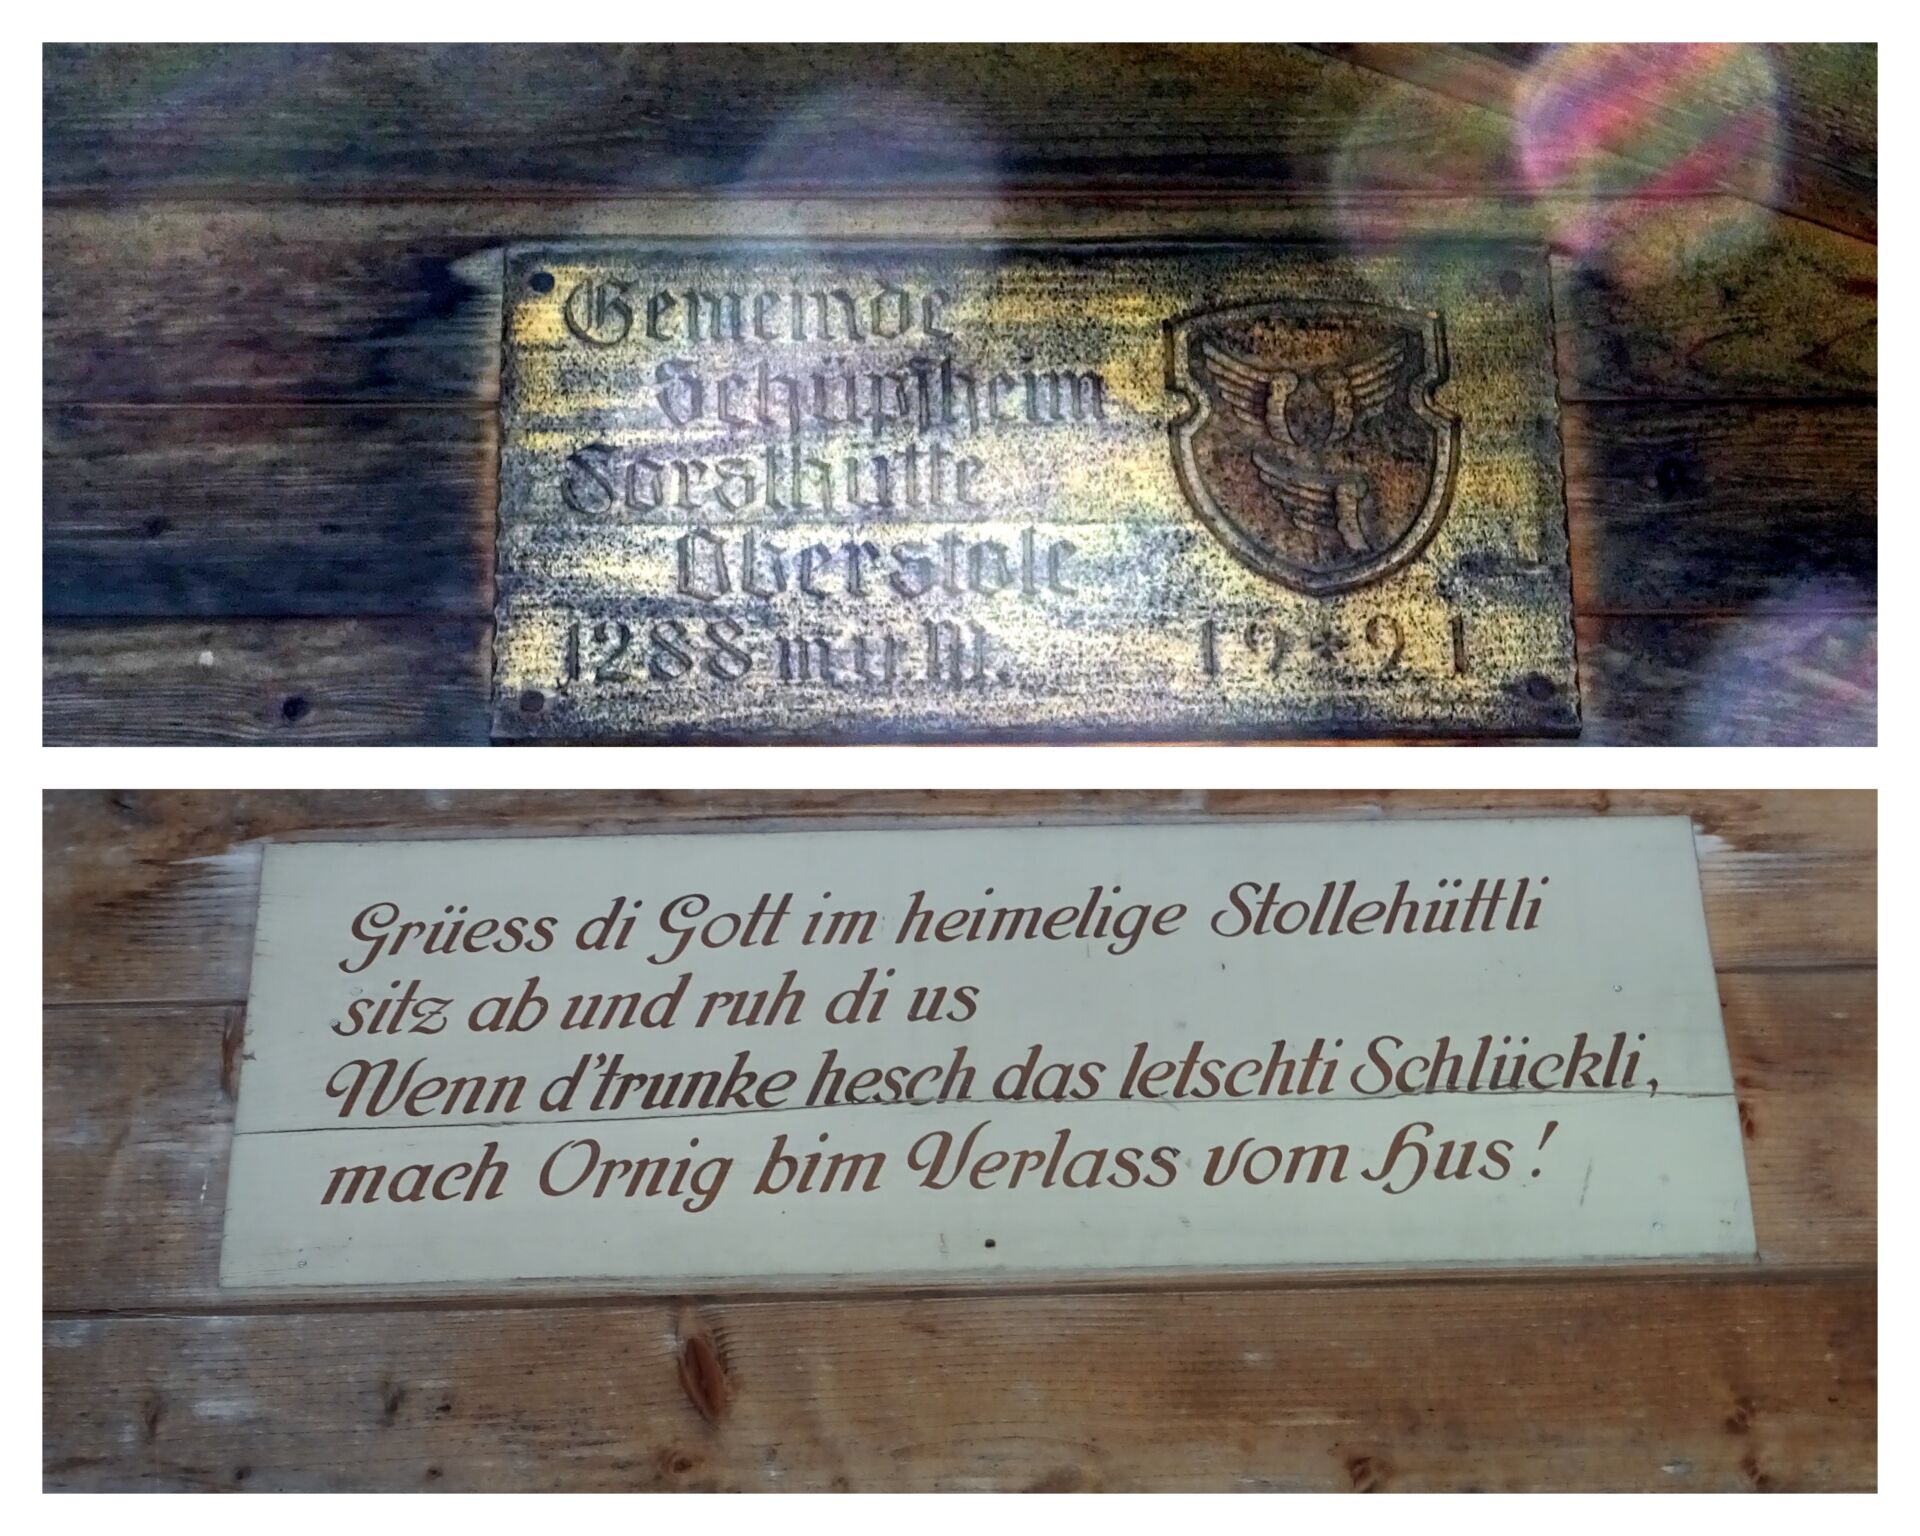 Gemeinde
Schüpfheim
Forsthütte
Oberstole
1288 m ü. M. 19*21
Grüess di Gott im heimelige Stollehüttli
sitz ab und ruh di us
Wenn d'trunke hesch das letschti Schlückli,
mach Ornig bim Verlass vom Hus!